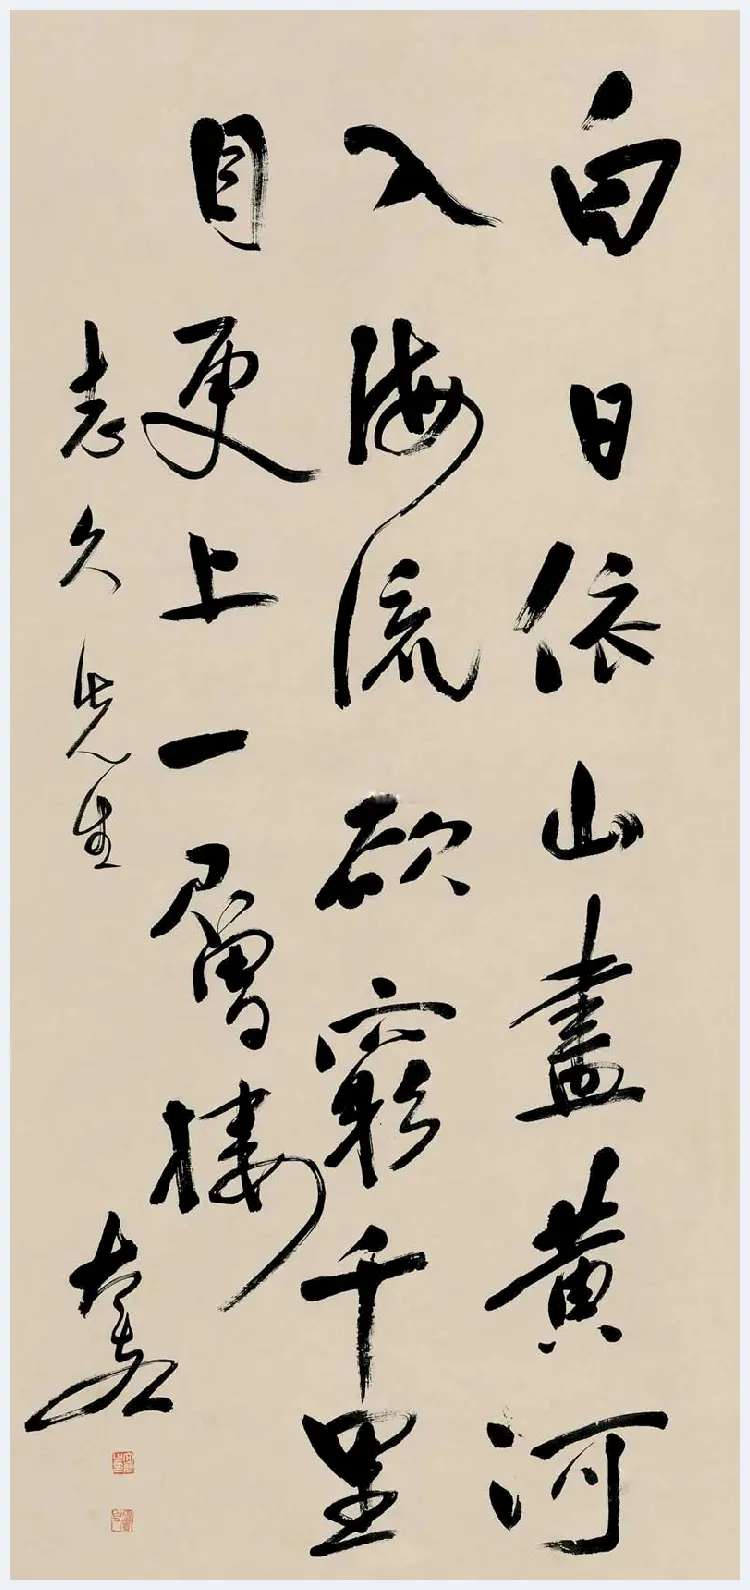 白日依山盡黄河
入海流欲窮千里
目更上一層樓
志久先生